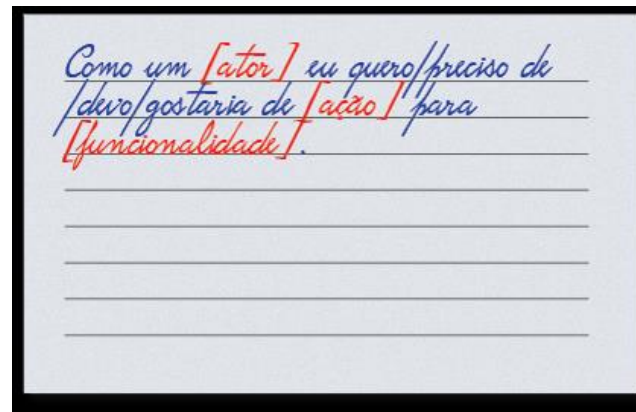 Como um [ator] eu quero/preciso de
/devo/gostaria de [ação] para
[funcionalidade].